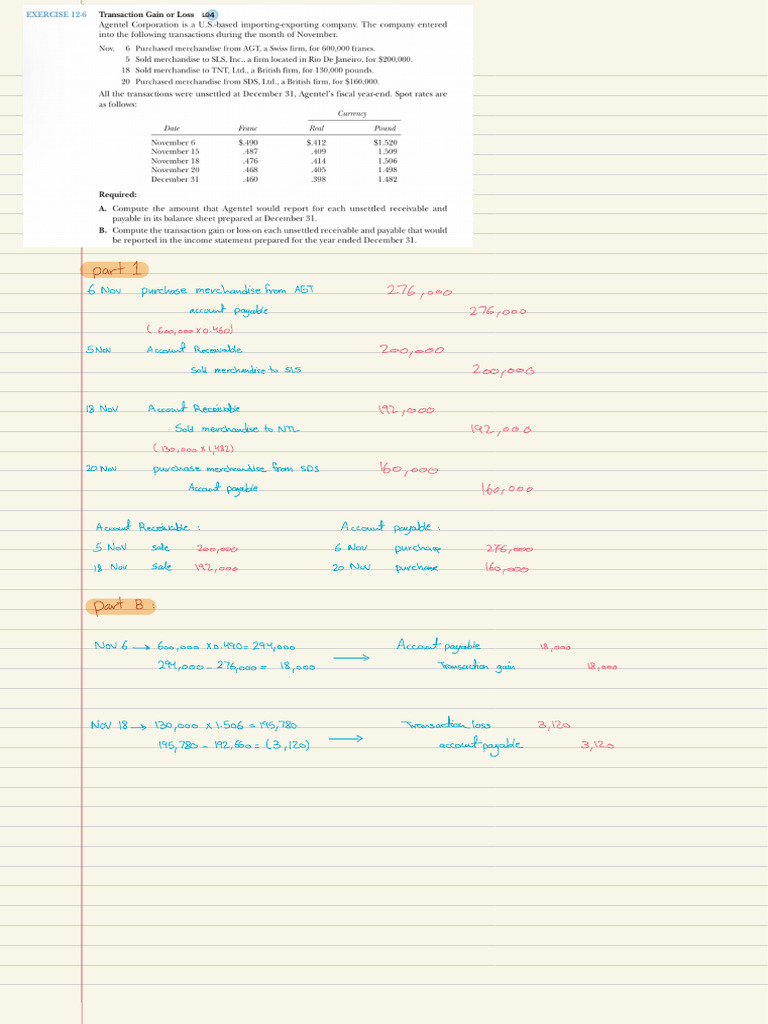 EXERCISE 12-6 Transaction Gain or Loss LO4
Agentel Corporation is a U.S.-based importing-exporting company. The company entered
into the following transactions during the month of November.
Nov. 6 Purchased merchandise from AGT, a Swiss firm, for 600,000 francs.
5 Sold merchandise to SLS, Inc., a firm located in Rio De Janeiro, for $200,000.
18 Sold merchandise to TNT, Ltd., a British firm, for 130,000 pounds.
20 Purchased merchandise from SDS, Ltd., a British firm, for $160,000.
All the transactions were unsettled at December 31, Agentel's fiscal year-end. Spot rates are
as follows:
Currency
Date Franc Real Pound
November 6 $.490 $.412 $1.520
November 15 .487 .409 1.509
November 18 .476 .414 1.506
November 20 .468 .405 1.498
December 31 .460 .398 1.482
Required:
A. Compute the amount that Agentel would report for each unsettled receivable and
payable in its balance sheet prepared at December 31.
B. Compute the transaction gain or loss on each unsettled receivable and payable that would
be reported in the income statement prepared for the year ended December 31.
part 1
6 Nov purchase merchandise from AGT 276,000
account payable 276,000
( 600,000 x 0.460)
5 Nov Account Receivable 200,000
Sold merchandise to SLS 200,000
18 Nov Account Receivable 192,000
Sold merchandise to NTL 192,000
( 130,000 x 1,482)
20 Nov purchase merchandise from SDS 160,000
Account payable 160,000
Account Receivable : Account payable :
5 Nov sale 200,000 6 Nov purchase 276,000
18 Nov sale 192,000 20 Nov purchase 160,000
Part B :
Nov 6 → 600,000 x 0.490 = 294,000 Account payable 18,000
294,000 - 276,000 = 18,000 → Transaction gain 18,000
Nov 18 → 130,000 x 1.506 = 195,780 Transaction loss 3,120
195,780 - 192,660 = (3,120) → account payable 3,120